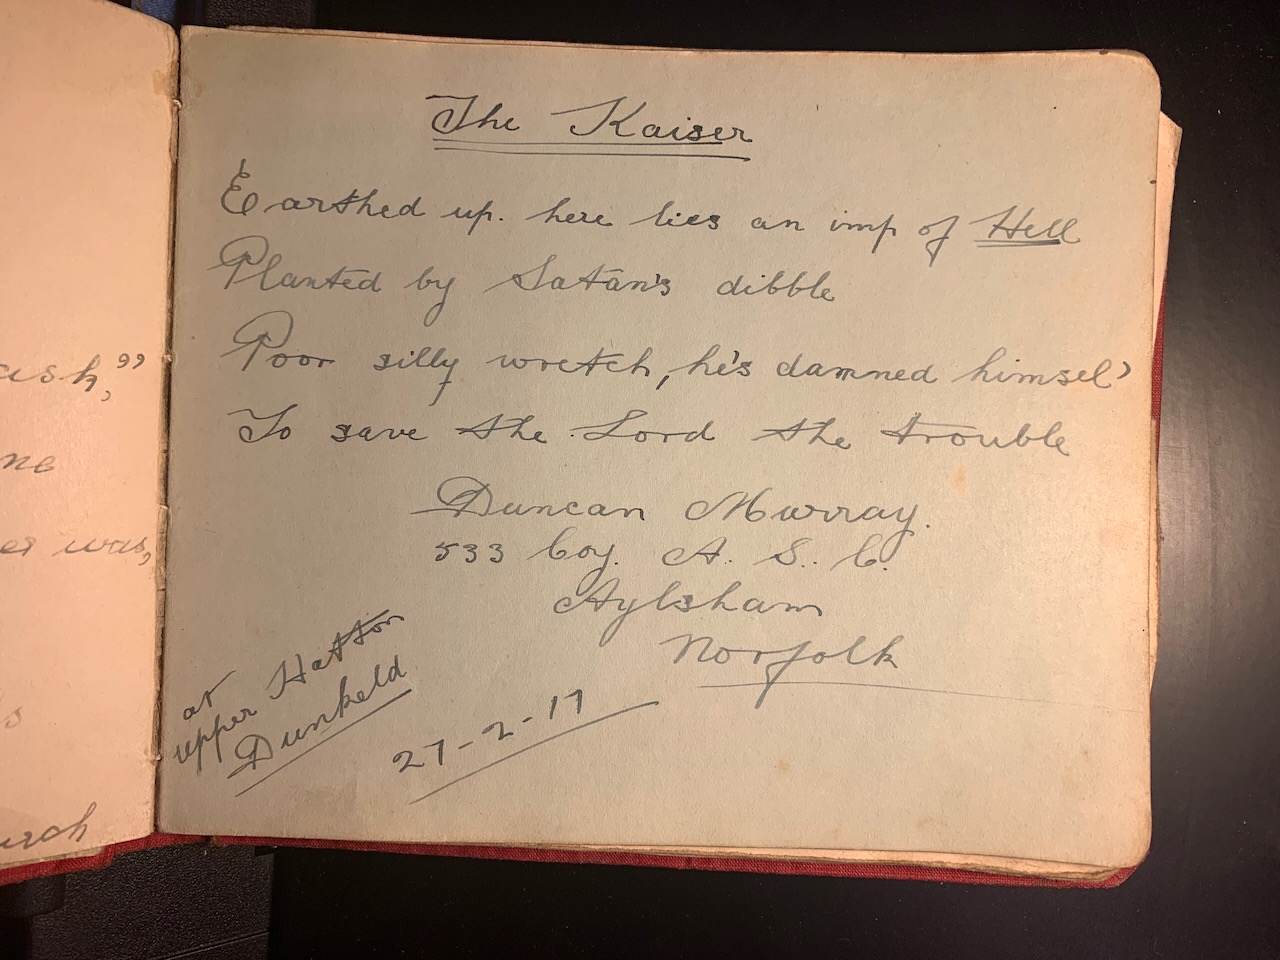 ash,"
ne
er was,
s
urch
The Kaiser
Earthed up. here lies an imp of Hell
Planted by Satan's dibble
Poor silly wretch, he's damned himsel'
To save the Lord the trouble
Duncan Murray.
533 Coy. A. S. C.
Aylsham
Norfolk
at
upper Hatton
Dunkeld
27-2-17